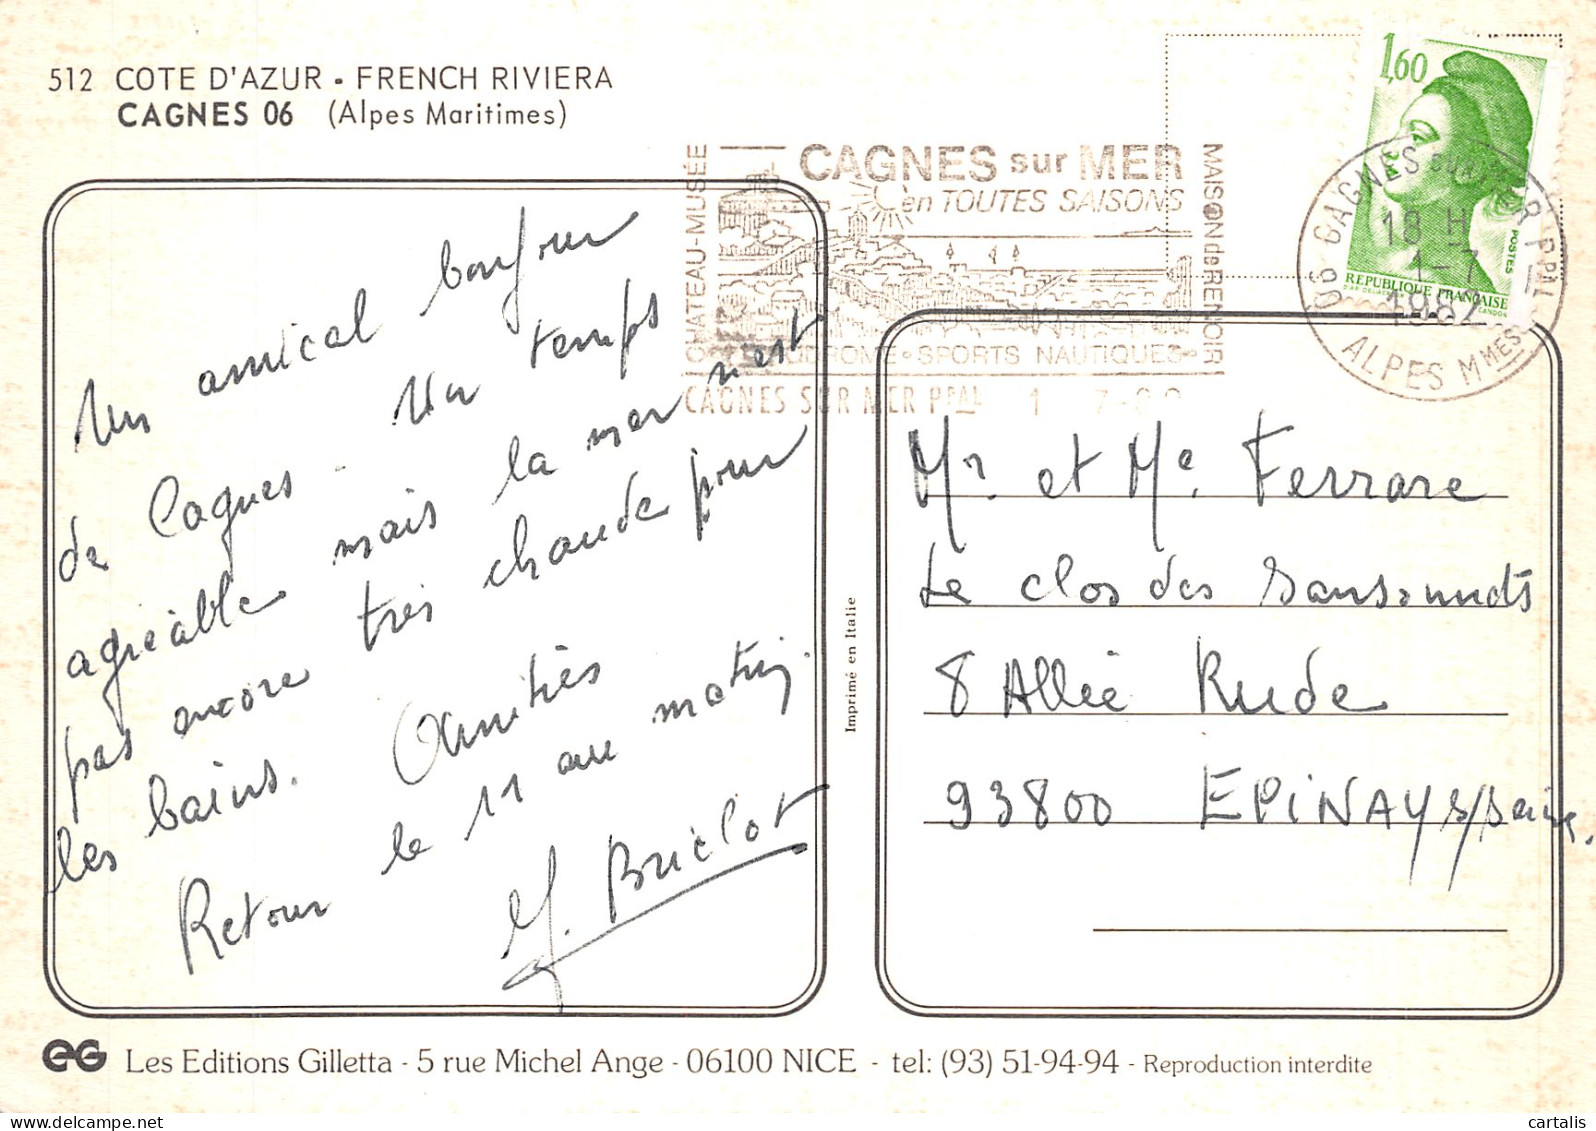 512 COTE D'AZUR - FRENCH RIVIERA
CAGNES 06 (Alpes Maritimes)
1,60
POSTES
REPUBLIQUE FRANÇAISE
GANDON
CAGNES sur MER
en TOUTES SAISONS
CHATEAU-MUSÉE
MAISON de RENOIR
SPORTS NAUTIQUES
CAGNES SUR MER PPAL 1 7-82
06 CAGNES SUR MER PPAL
18 H
1-7
1982
ALPES MMES
Un amical bonjour
de Cagnes - Un temps
agréable mais la mer n'est
pas encore très chaude pour
les bains. Amitiés
Retour le 11 au matin.
Y. Briclot
Imprimé en Italie
Mr. et Me. Ferrare
Le clos des
8 Allée Rude
93800 EPINAY s/Seine.
eG Les Editions Gilletta - 5 rue Michel Ange - 06100 NICE - tel: (93) 51-94-94 - Reproduction interdite
cartalis